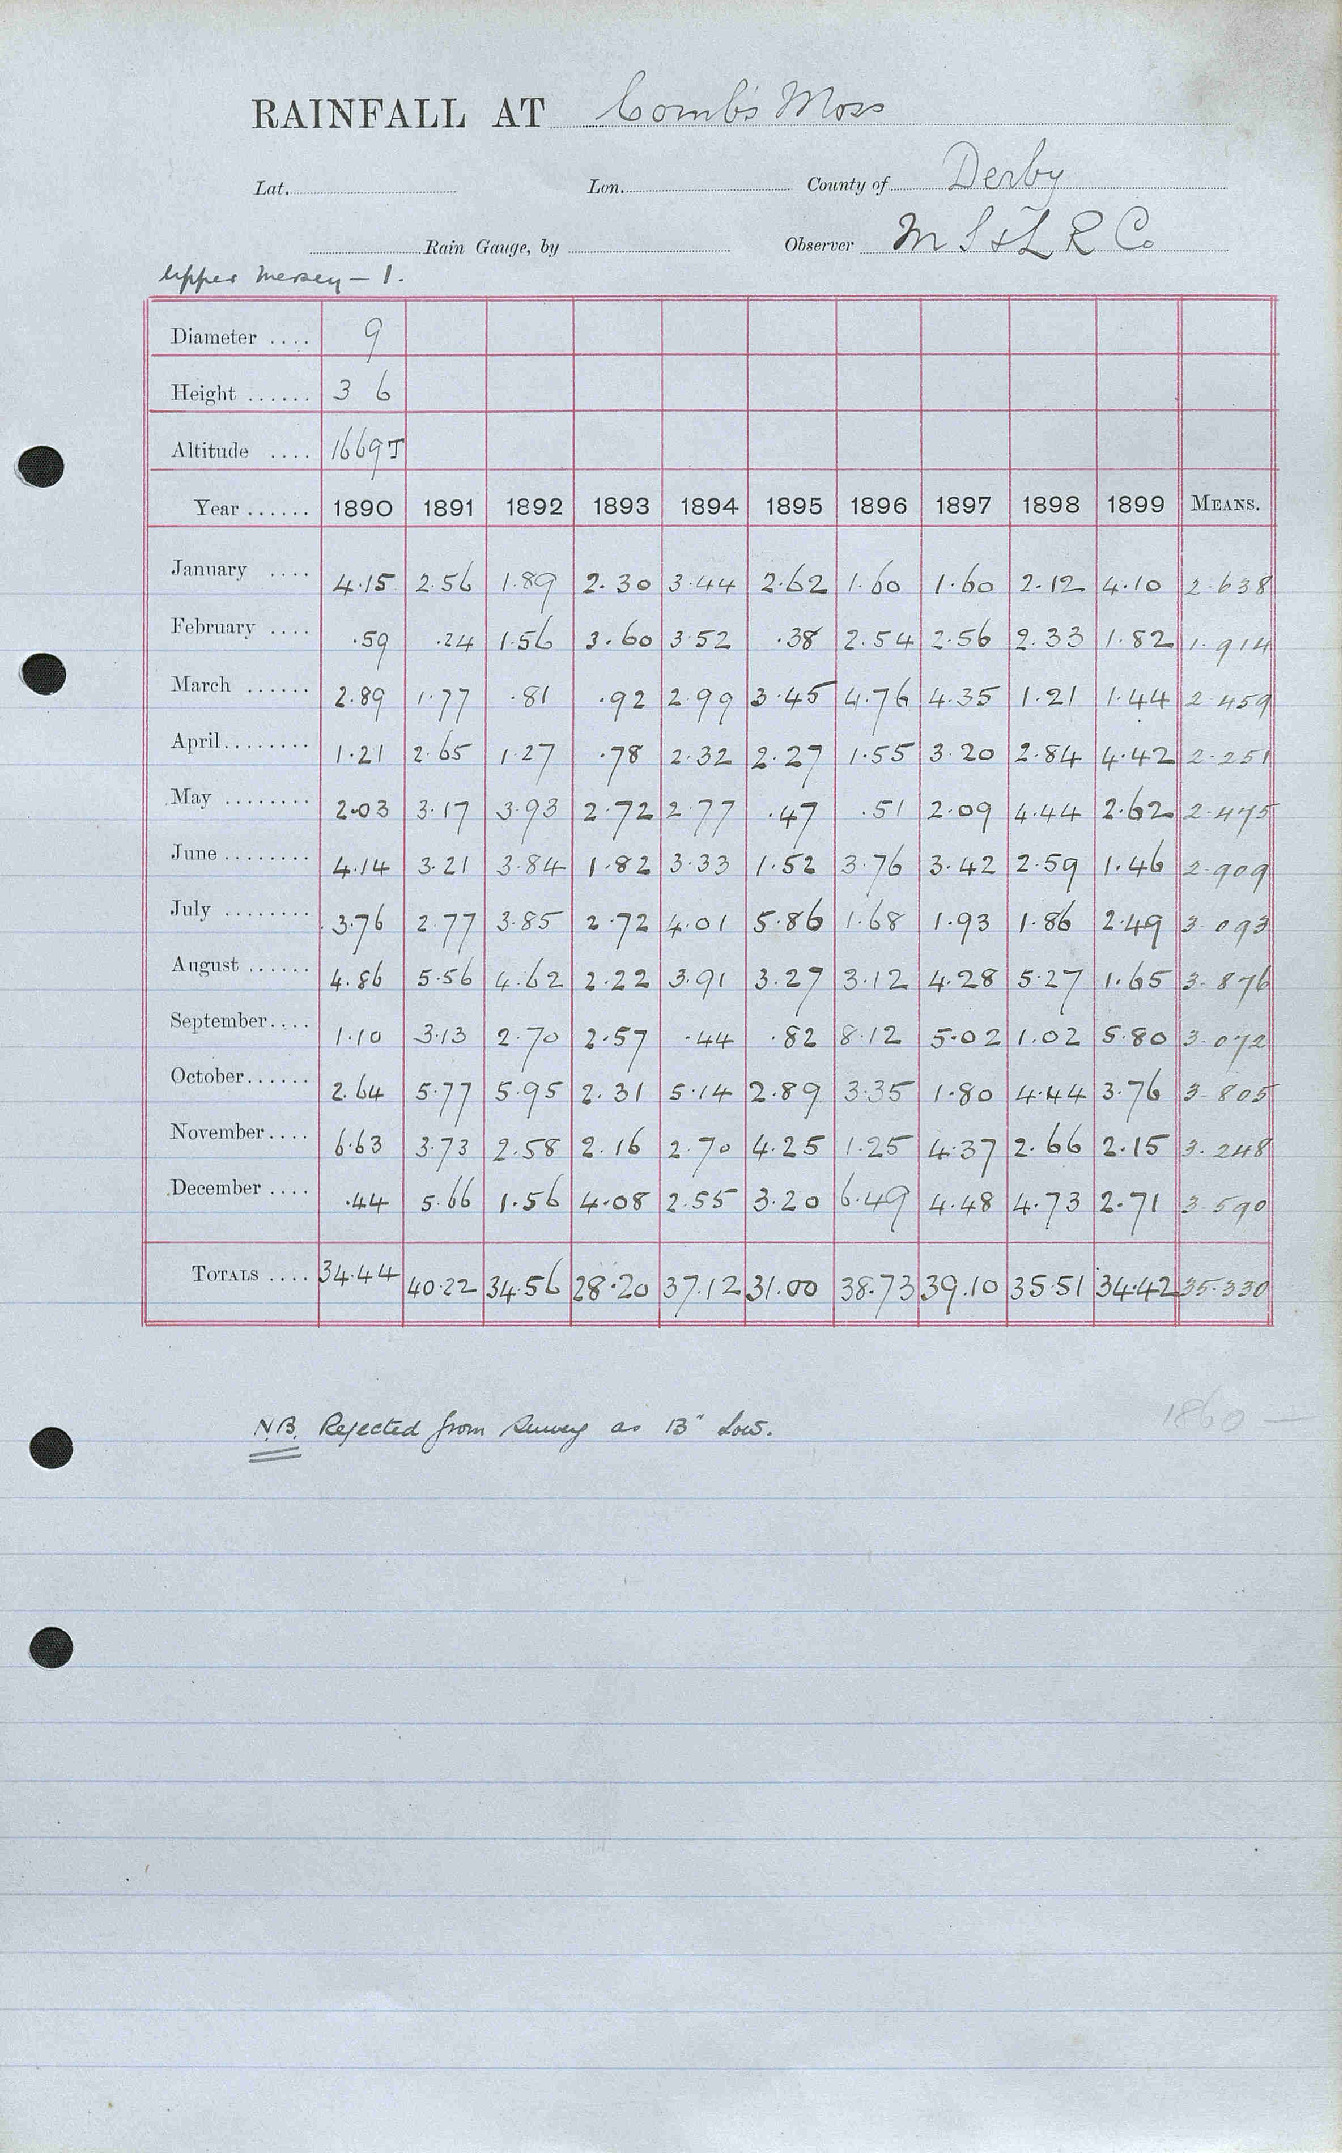 RAINFALL AT Comb's Moss
Lat. Lon. County of Derby
Rain Gauge, by Observer M S & L R Co
Upper Mersey — 1.
Diameter .... 9
Height ...... 3 6
Altitude .... 1669 T
Year ...... 1890 1891 1892 1893 1894 1895 1896 1897 1898 1899 MEANS.
January .... 4.15 2.56 1.89 2.30 3.44 2.62 1.60 1.60 2.12 4.10 2.638
February .... .59 .24 1.56 3.60 3.52 .38 2.54 2.56 2.33 1.82 1.914
March ...... 2.89 1.77 .81 .92 2.99 3.45 4.76 4.35 1.21 1.44 2.459
April ........ 1.21 2.65 1.27 .78 2.32 2.27 1.55 3.20 2.84 4.42 2.251
May ........ 2.03 3.17 3.93 2.72 2.77 .47 .51 2.09 4.44 2.62 2.475
June ........ 4.14 3.21 3.84 1.82 3.33 1.52 3.76 3.42 2.59 1.46 2.909
July ........ 3.76 2.77 3.85 2.72 4.01 5.86 1.68 1.93 1.86 2.49 3.093
August ...... 4.86 5.56 4.62 2.22 3.91 3.27 3.12 4.28 5.27 1.65 3.876
September .... 1.10 3.13 2.70 2.57 .44 .82 8.12 5.02 1.02 5.80 3.072
October ...... 2.64 5.77 5.95 2.31 5.14 2.89 3.35 1.80 4.44 3.76 3.805
November .... 6.63 3.73 2.58 2.16 2.70 4.25 1.25 4.37 2.66 2.15 3.248
December .... .44 5.66 1.56 4.08 2.55 3.20 6.49 4.48 4.73 2.71 3.590
TOTALS .... 34.44 40.22 34.56 28.20 37.12 31.00 38.73 39.10 35.51 34.42 35.330
1860 —
N.B. Rejected from Survey as 13" Low.